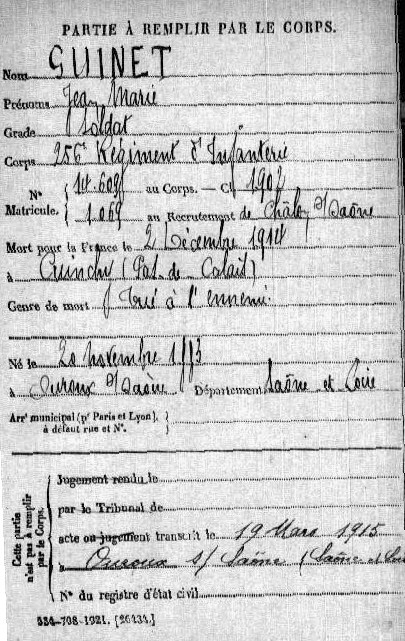 PARTIE À REMPLIR PAR LE CORPS.
Nom GUINET
Prénoms Jean Marie
Grade Soldat
Corps 256e Régiment d'Infanterie
N° Matricule. 14.609 au Corps. — Cl. 190
1.069 au Recrutement de Châlon s/Saône
Mort pour la France le 2 Décembre 1914
à Cuinchy (Pas-de-Calais)
Genre de mort Tué à l'ennemi
Né le 20 novembre
à Ouroux s/Saône Département Saône et Loire
Arrt municipal (pr Paris et Lyon),
à défaut rue et N°.
Cette partie n'est pas à remplir par le Corps.
Jugement rendu le
par le Tribunal de
acte ou jugement transcrit le 19 Mars 1915
à Ouroux s/ Saône (Saône et Loire
N° du registre d'état civil
534-708-1921. [26434.]